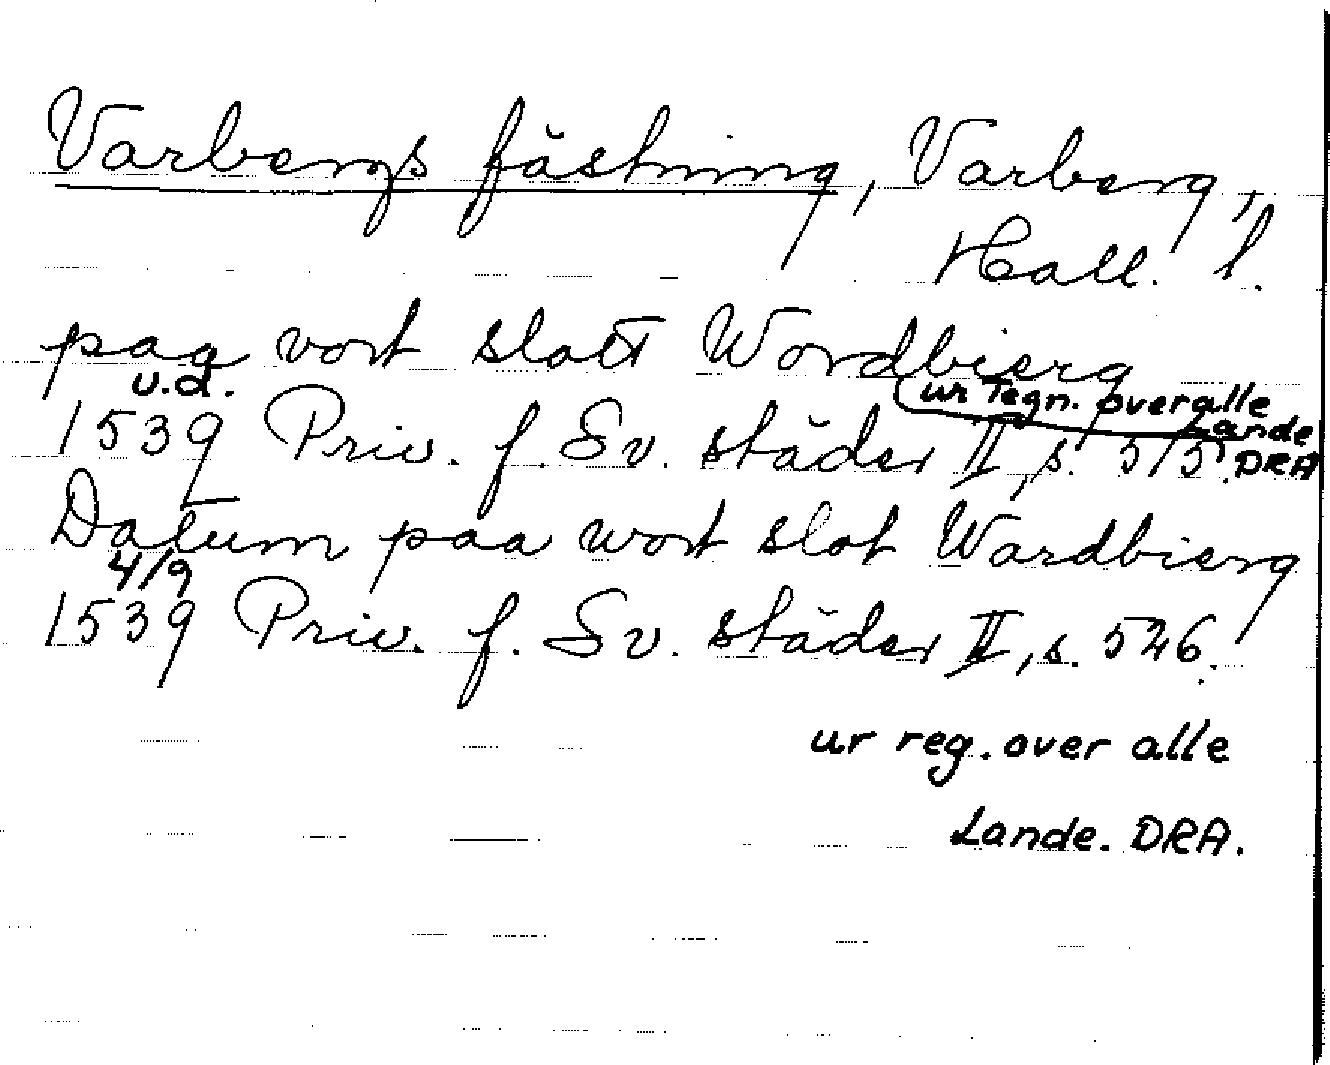 Varbergs fästning, Varberg,
Hall. l.
paa vort slott Wordbierg
u.d.
ur Tegn. over alle
Lande
1539 Priv. f. Sv. städer II, s. 515. DRA
Datum paa wort slot Wardbierg
4/9
1539 Priv. f. Sv. städer II, s. 526.
ur reg. over alle
Lande. DRA.